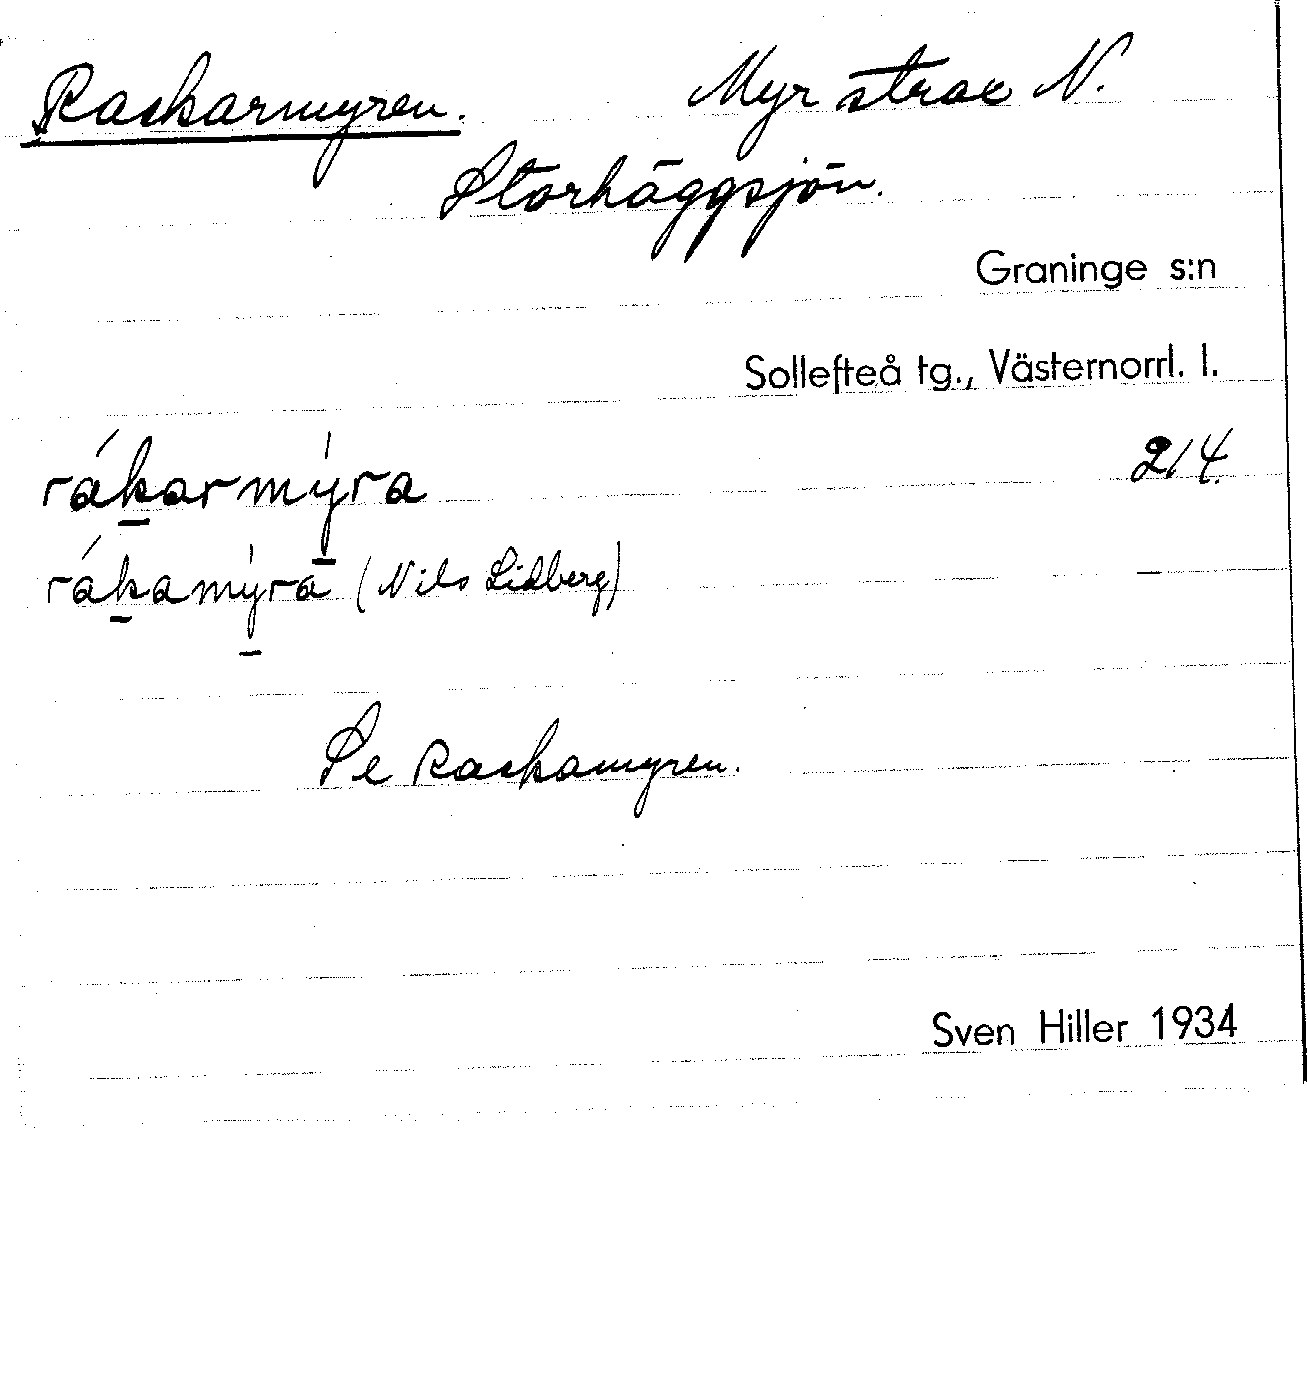 Rackarmyren. Myr strax N.
Storhäggsjön.
Graninge s:n
Sollefteå tg., Västernorrl. l.
rákarmýra 214.
rákamýra (Nils Lidberg)
Se Rackamyren.
Sven Hiller 1934